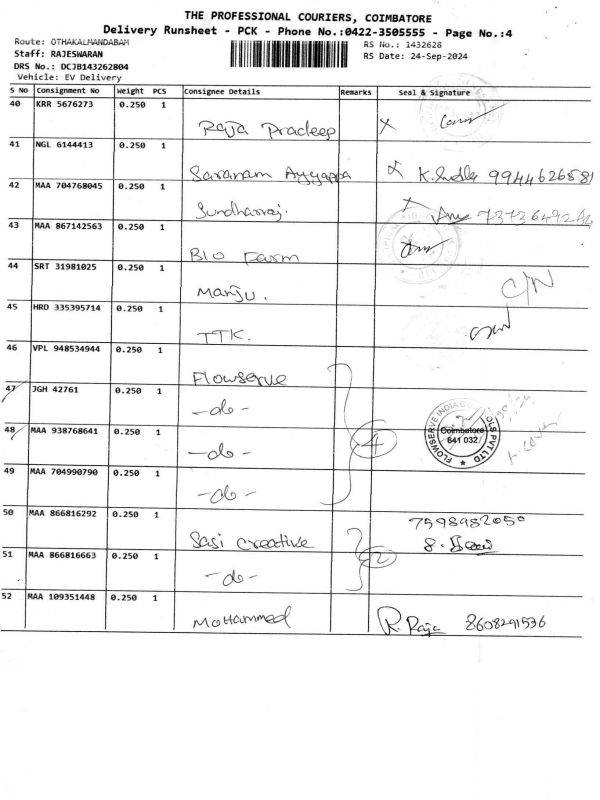 THE PROFESSIONAL COURIERS, COIMBATORE
Delivery Runsheet - PCK - Phone No.:0422-3505555 - Page No.:4
Route: OTHAKALMANDABAM
RS No.: 1432628
Staff: RAJESWARAN
RS Date: 24-Sep-2024
DRS No.: DCJB143262804
Vehicle: EV Delivery
S No Consignment No Weight PCS Consignee Details Remarks Seal & Signature
40 KRR 5676273 0.250 1 Raja Pradeep X
41 NGL 6144413 0.250 1 Saranam Ayyappa 9944626581
42 MAA 704768045 0.250 1 Sundharraj.
43 MAA 867142563 0.250 1 Bio Farm
44 SRT 31981025 0.250 1 Manju. C/N
45 HRD 335395714 0.250 1 TTK.
46 VPL 948534944 0.250 1 Flowserve
47 JGH 42761 0.250 1 -do-
48 MAA 938768641 0.250 1 -do- 4
FLOWSERVE INDIA PVT LTD
Coimbatore
641 032
49 MAA 704990790 0.250 1 -do-
50 MAA 866816292 0.250 1 Sasi Creative 7598982050
51 MAA 866816663 0.250 1 -do- 2
52 MAA 109351448 0.250 1 Mohammed R. Raja 8608291536